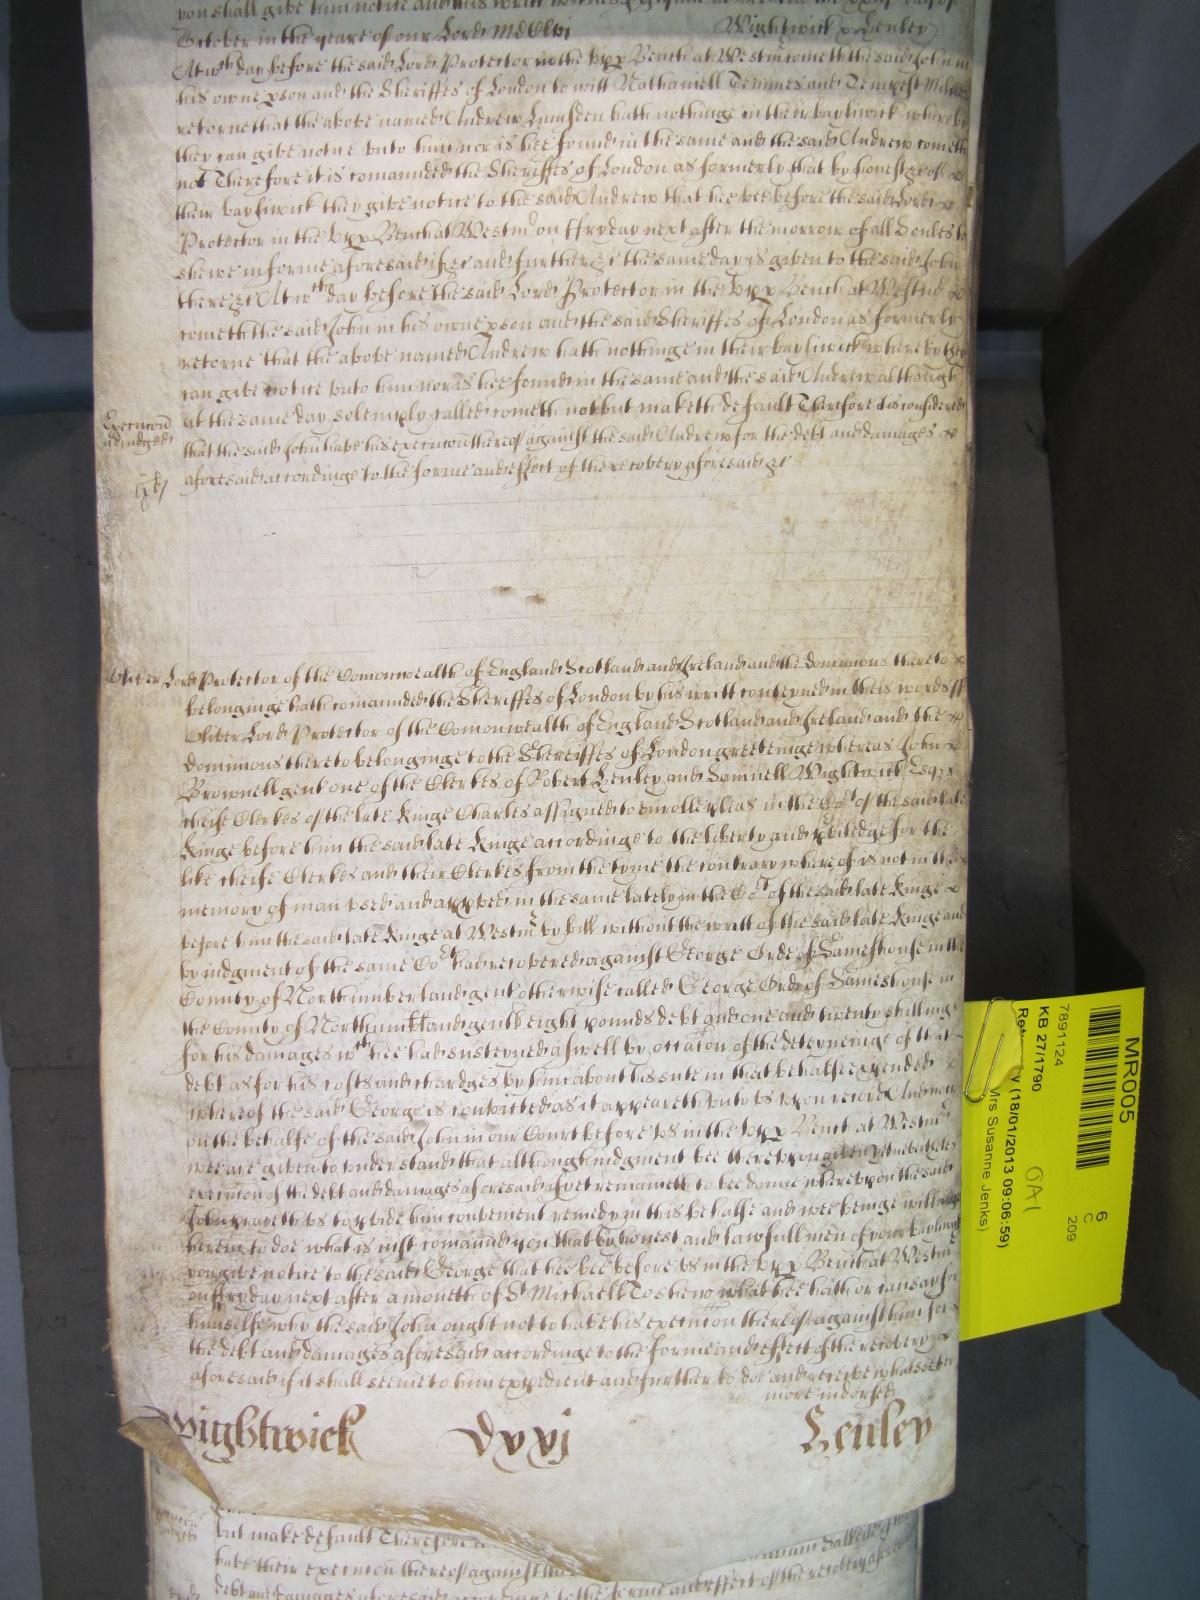 you shall give him notice and this writt Witnes
October in the yeare of our Lord MDClvi Wightwick & Henley
At wch day before the said Lord Protector in the vpp Bench at Westm cometh the said John in
his owne pson and the Sheriffes of London to witt Nathaniell Temmes and Tempest Milner
retorne that the above named Andrew Lumsden hath nothinge in their bayliwick whereby
they can give notice vnto him nor is hee found in the same and the said Andrew cometh
not Therefore it is comannded the Sheriffes of London as formerly that by honest &c of
their bayliwick they give notice to the said Andrew that hee bee before the said Lord
Protector in the vpp Bench at Westm on ffryday next after the morrow of all Soules to
shewe in forme aforesaid if &c and further &c the same day is given to the said John
there &c At wch day before the said Lord Protector in the vpp Bench at Westm
cometh the said John in his owne pson and the said Sheriffes of London as formerly
retorne that the above named Andrew hath nothinge in their bayliwick whereby they
can give notice vnto him nor is hee found in the same and the said Andrew although
at the same day solemply called cometh not but maketh default Therefore it is considered
Execucon
adiudged
that the said John have his execucon thereof against the said Andrew for the debt and damages
aforesaid accordinge to the forme and effect of the recovery aforesaid &c
Oliver Lord Protector of the Comonwealth of England Scotland and Ireland and the dominions thereto
belonginge hath comannded the Sheriffes of London by his writt conteyned in theis words ss
Oliver Lord Protector of the Comonwealth of England Scotland and Ireland and the
dominions thereto belonginge to the Sheriffes of London greetinge whereas John
Brownell gent one of the Clerkes of Robert Henley and Samuell Wightwick Esqrs
cheife Clerkes of the late Kinge Charles assigned to enrolle pleas in the Cort of the said late
Kinge before him the said late Kinge accordinge to the liberty and priviledge for the
like cheife Clerkes and their Clerkes from the tyme the contrary whereof is not in the
memory of man vsed and appved in the same lately in the Cort of the said late Kinge
before him the said late Kinge at Westm by bill without the writt of the said late Kinge and
by iudgment of the same Cort had recovered against George Orde of Sameshouse in the
County of Northumberland gent otherwise called George Orde of Sameshouse in
the County of Northumbland gent eight pounds debt and one and twenty shillings
for his damages wch hee had susteyned aswell by occacon of the deteyninge of that
debt as for his costs and chardges by him about his sute in that behalfe expended
whereof the said George is convicted as it appeareth vnto vs vpon record And now
on the behalfe of the said John in our Court before vs in the vpp Bench at Westm
wee are given to vnderstand that although iudgment bee therevpon given yet neverthelesse
execucon of the debt and damages aforesaid as yet remaineth to bee donne wherevpon the said
John prayeth vs to pvide him convenient remedy in this behalfe and wee beinge willinge
herein to doe what is iust comannd you that by honest and lawfull men of your bayliwick
you give notice to the said George that hee bee before vs in the vpp Bench at Westm
on ffryday next after a moneth of St Michaell To shewe what hee hath or can say for
himselfe why the said John ought not to have his execucon thereof against him for
the debt and damages aforesaid accordinge to the forme and effect of the recovery
aforesaid if it shall seeme to him expedient and further to doe and receive whatsoever
more indorsed
Wightwick Dxxj Henley
but make default Therefore
have their execucon thereof against
debt and damages aforesaid accordinge to the forme and effect of the recovery aforesaid
MR005
7891124
KB 27/1790
(18/01/2013 09:06:59)
Mrs Susanne Jenks)
OA1
6
C
209